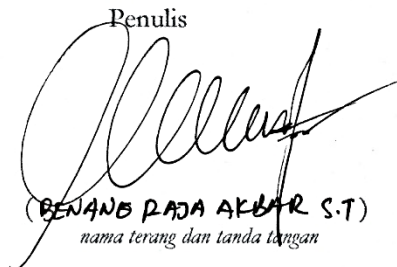 Penulis
(BENANG RAJA AKBAR S.T)
nama terang dan tanda tangan